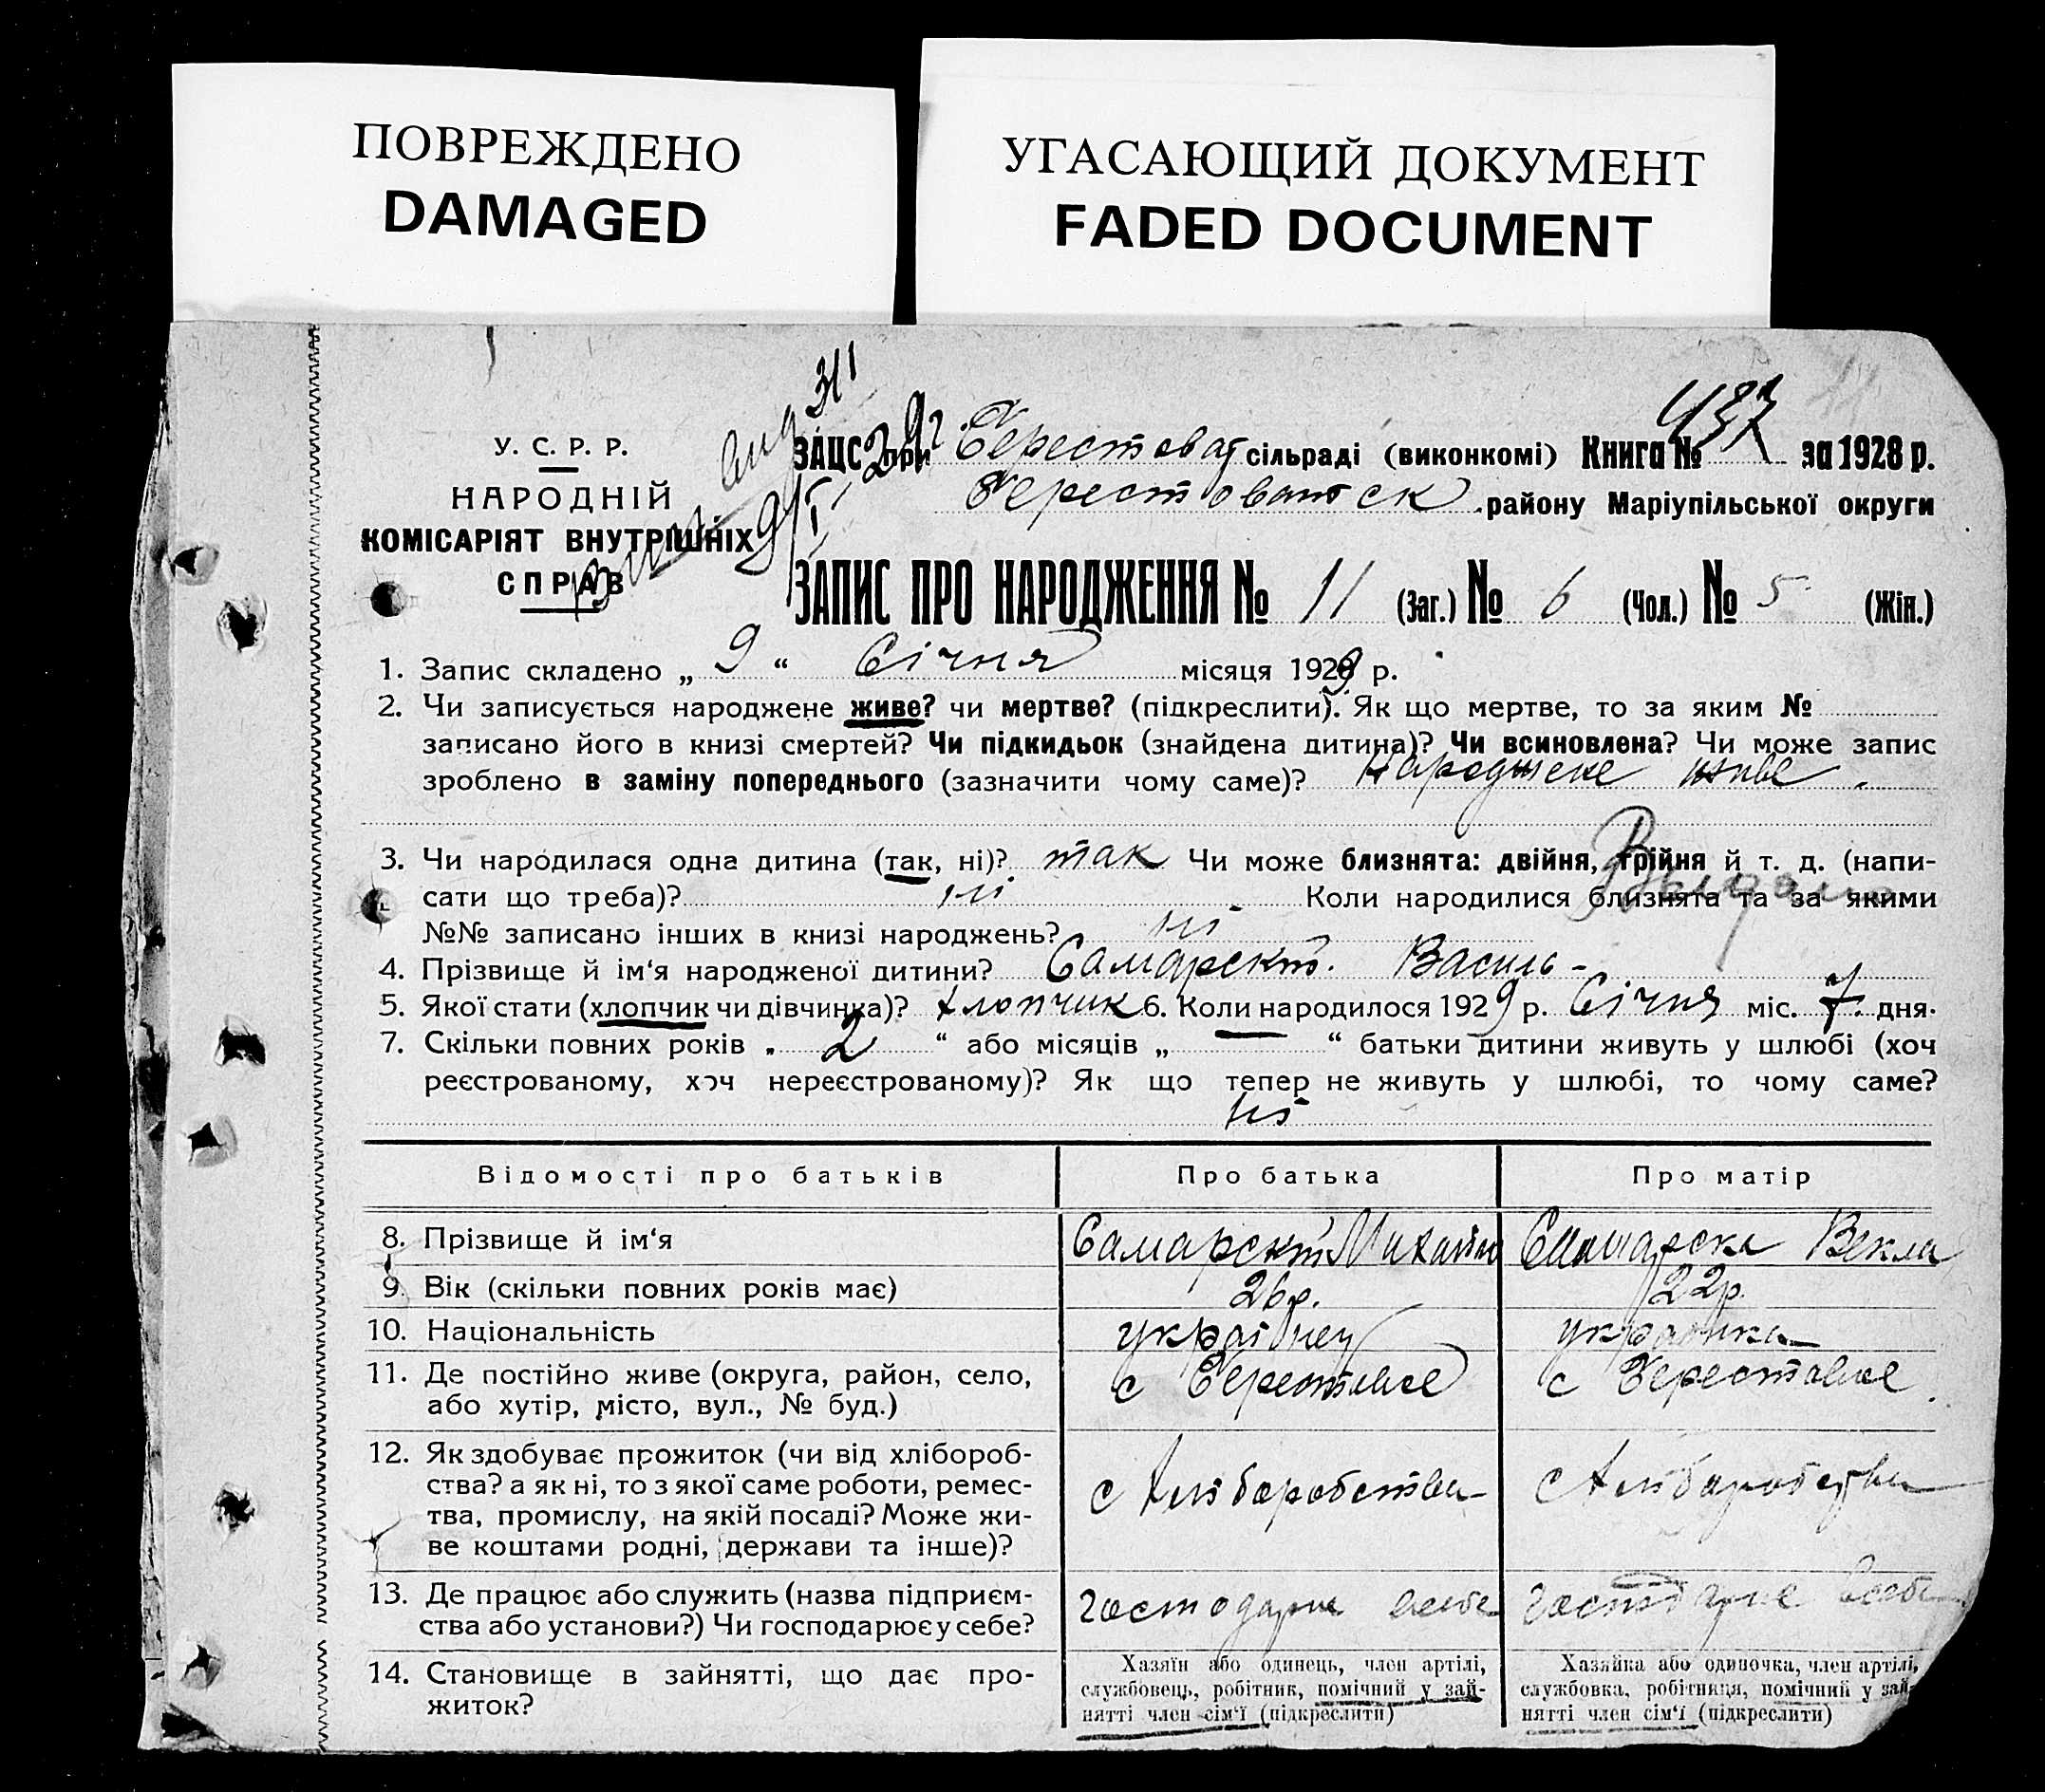 ПОВРЕЖДЕНО
DAMAGED
УГАСАЮЩИЙ ДОКУМЕНТ
FADED DOCUMENT
У. С. Р. Р.
НАРОДНІЙ
КОМІСАРІЯТ ВНУТРІШНІХ
СПРАВ
ЗАЦС при Берестоват сільраді (виконкомі) Книга № 437 за 1928 р.
Берестоватск району Маріупільської округи
ЗАПИС ПРО НАРОДЖЕННЯ № 11 (Заг.) № 6 (Чол.) № 5 (Жін.)
1. Запис складено „ 9 “ Січня місяця 1929 р.
2. Чи записується народжене живе? чи мертве? (підкреслити). Як що мертве, то за яким №
записано його в книзі смертей? Чи підкидьок (знайдена дитина)? Чи всиновлена? Чи може запис
зроблено в заміну попереднього (зазначити чому саме)? Народжене живе.
3. Чи народилася одна дитина (так, ні)? так Чи може близнята: двійня, трійня й т. д. (напи-
сати що треба)? ні Коли народилися близнята та за якими
№№ записано інших в книзі народжень? ні
4. Прізвище й ім‘я народженої дитини? Самарскт. Василь -
5. Якої стати (хлопчик чи дівчинка)? хлопчик 6. Коли народилося 1929 р. Січня міс. 7. дня.
7. Скільки повних років „ 2 “ або місяців „ — “ батьки дитини живуть у шлюбі (хоч
реєстрованому, хоч нереєстрованому)? Як що тепер не живуть у шлюбі, то чому саме?
ні
Відомості про батьків Про батька Про матір
8. Прізвище й ім‘я Самарскт Михайло Самарска Векла
9. Вік (скільки повних років має) 26р. 22р.
10. Національність українец українка
11. Де постійно живе (округа, район, село, с Берестовое с Берестовое
або хутір, місто, вул., № буд.)
12. Як здобуває прожиток (чи від хлібороб-
ства? а як ні, то з якої саме роботи, ремес- с Хлібаробства с Хлібаробства
тва, промислу, на якій посаді? Може жи-
ве коштами родні, держави та інше)?
13. Де працює або служить (назва підприєм-
ства або установи?) Чи господарює у себе?
14. Становище в зайнятті, що дає про-
житок?
Хазяїн або одинець, член артілі,
службовець, робітник, помічний у зай-
нятті член сім‘ї (підкреслити)
Хазяйка або одиночка, член артілі,
службовка, робітниця, помічний у зай-
нятті член сім‘ї (підкреслити)